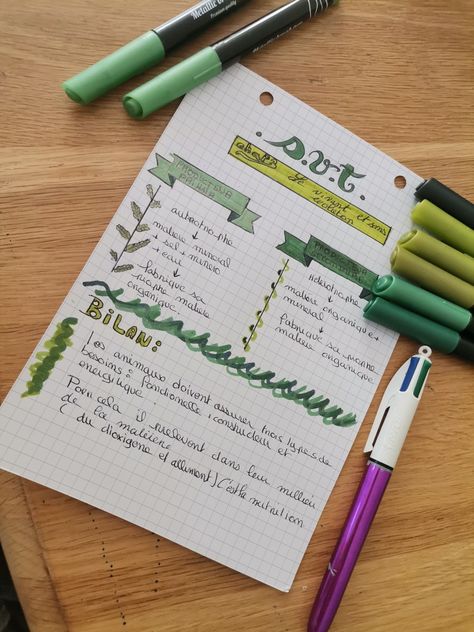 Metallic
Premium quality
. S.V.T .
chap 2 Le vivant et son
évolution
PRODUCTEUR
PRIMAIRE
autotrophe
matière minéral
+ sel minéro
+ eau
fabrique sa
propre matière
organique.
Hétérotrophe
matière organique +
minéral
fabrique sa propre
matière organique
BiLAN :
les animaux doivent assurer trois types de
besoins : fonctionelle, constructeur et
energetique.
Pour cela il prelevent dans leur millieu
de la matiere
( du dioxigene et aliment) C'est la nutrition